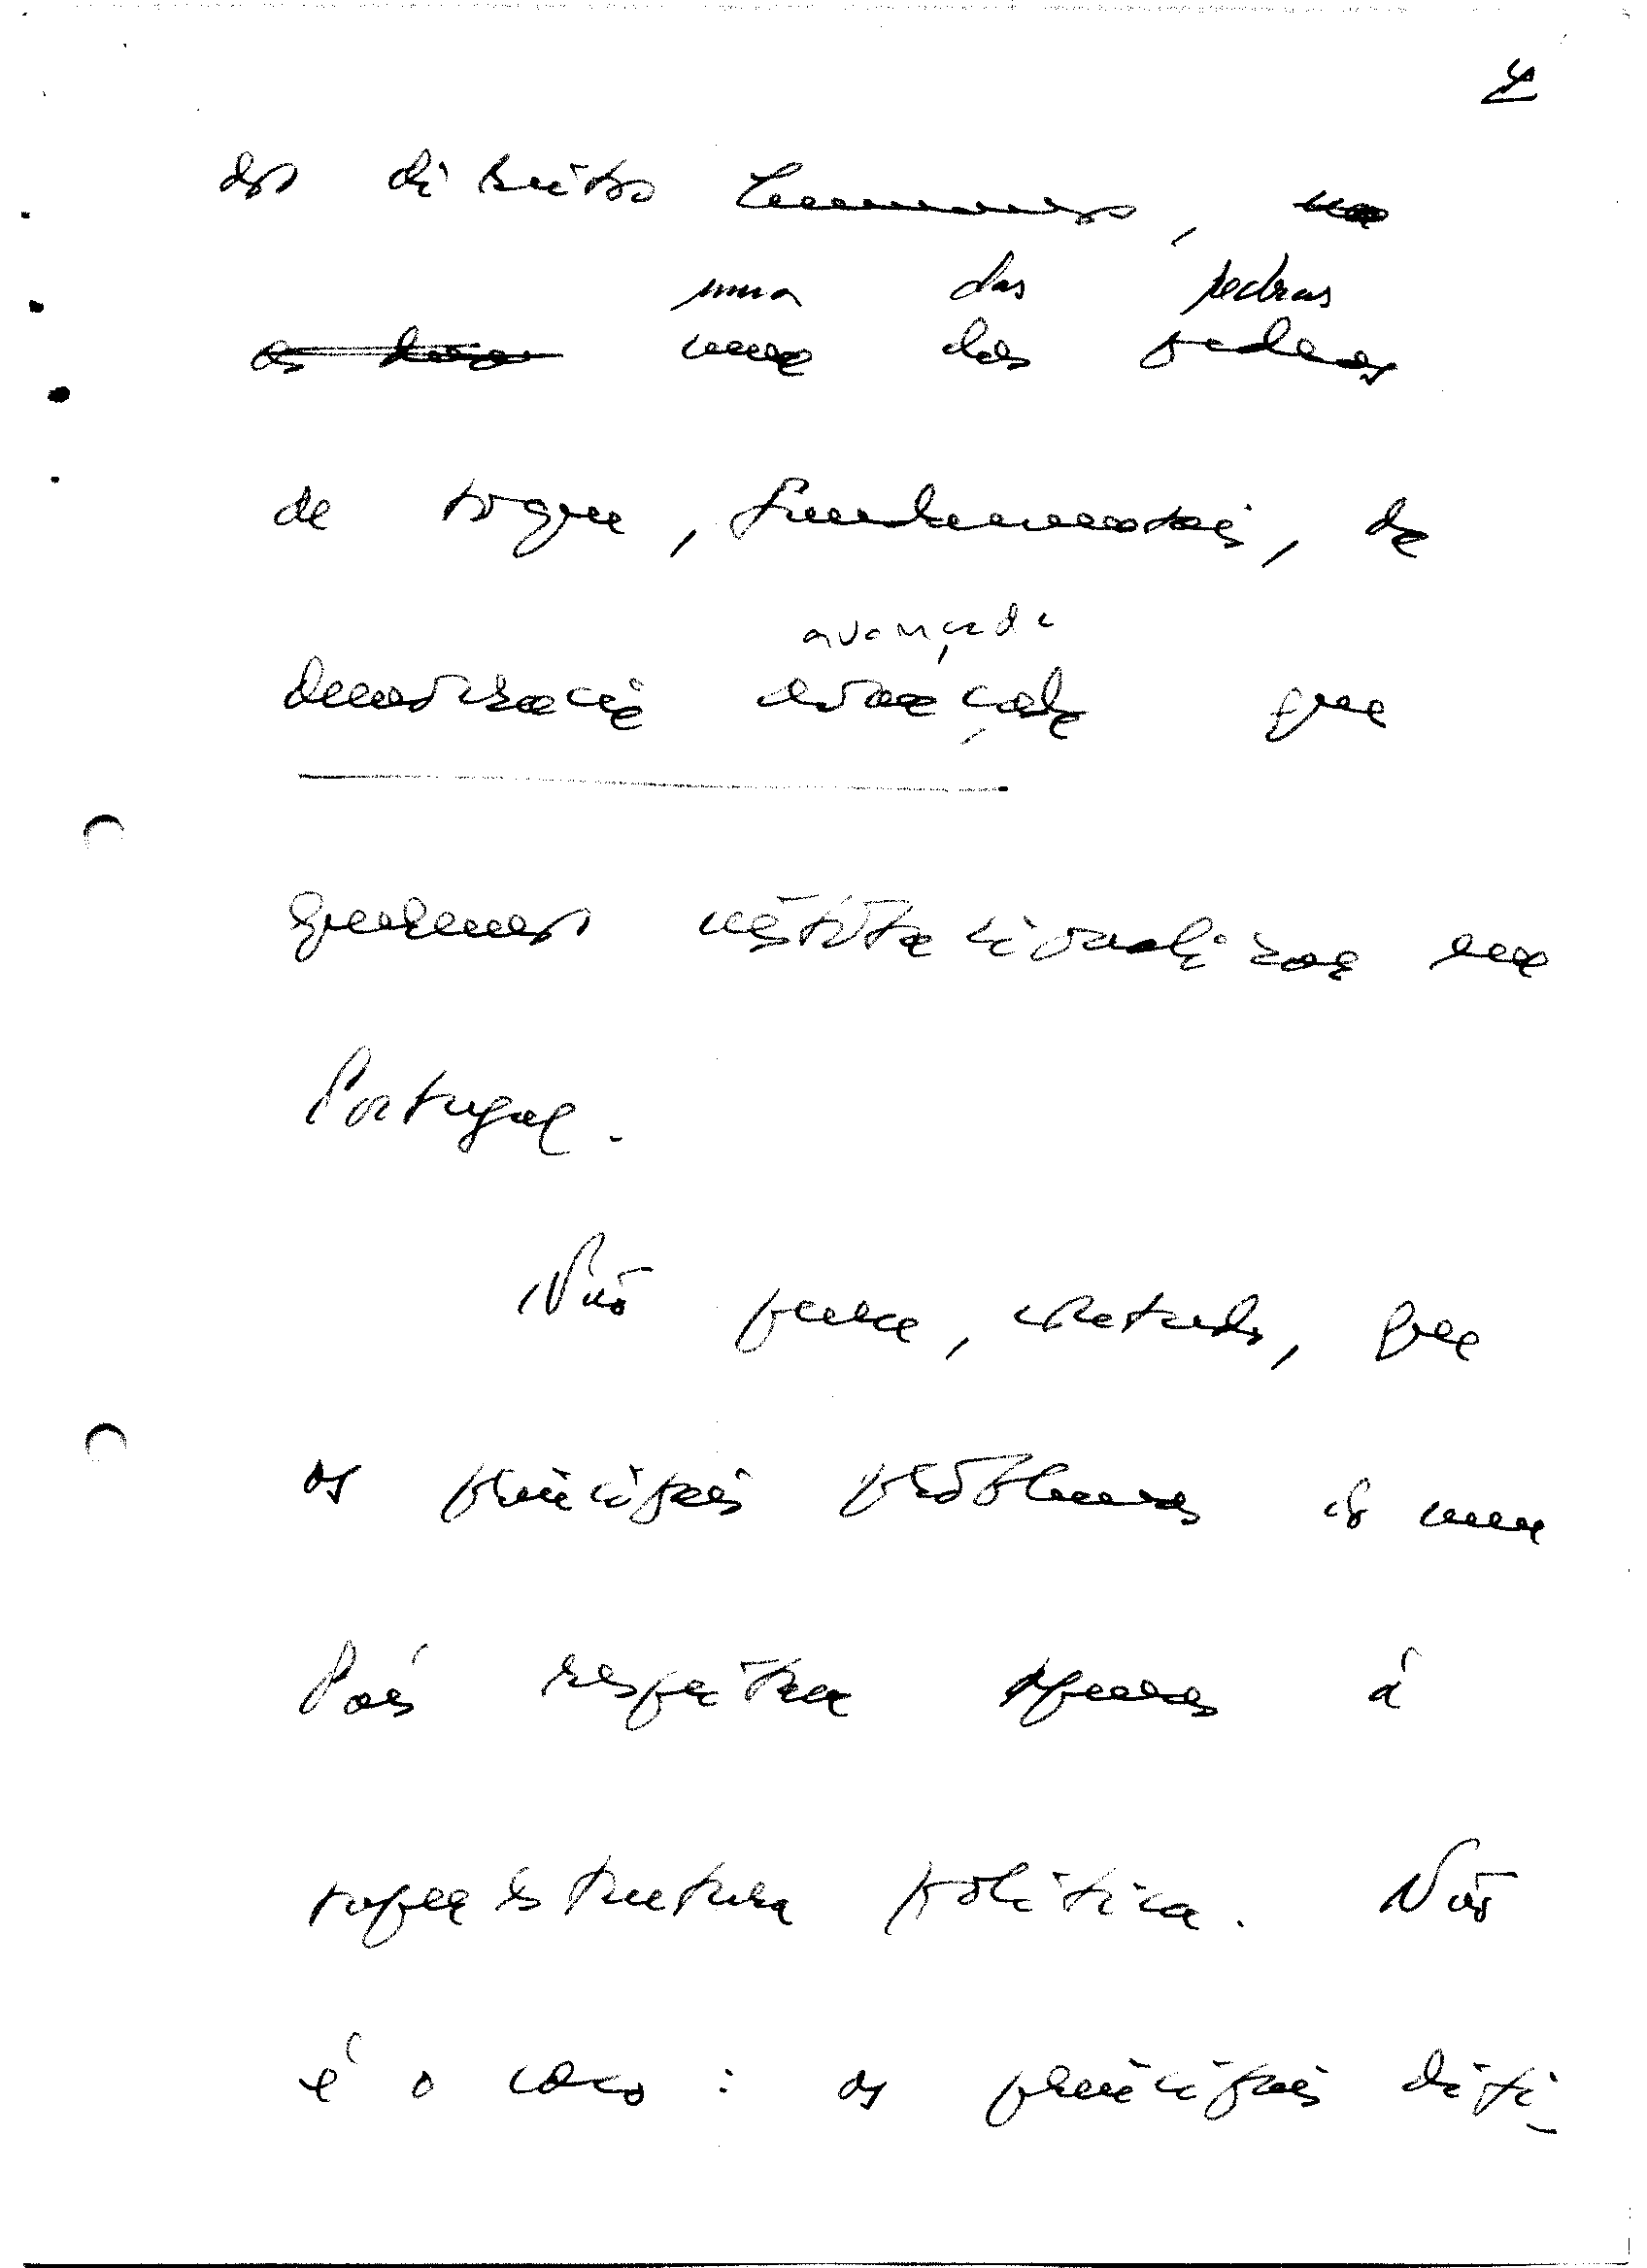 4
dos direitos humanos,
uma das pedras
uma das pedras
de toque, fundamentais, da
avançada
democracia avançada que
queremos institucionalizar em
Portugal.
Não penso, contudo, que
os principais problemas do meu
País respeitem apenas à
superestrutura política. Não
é o caso: os principais difi-